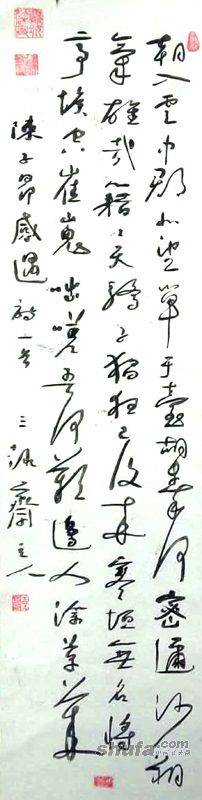 朝入云中郡北望单于台胡秦何密迩沙朔
氣雄哉籍籍天驕子猖狂已復来塞垣無名將
亭堠空崔嵬咄嗟吾何歎邊人塗草莱
陳子昂感遇詩一首 三 齋主人
shufa.com